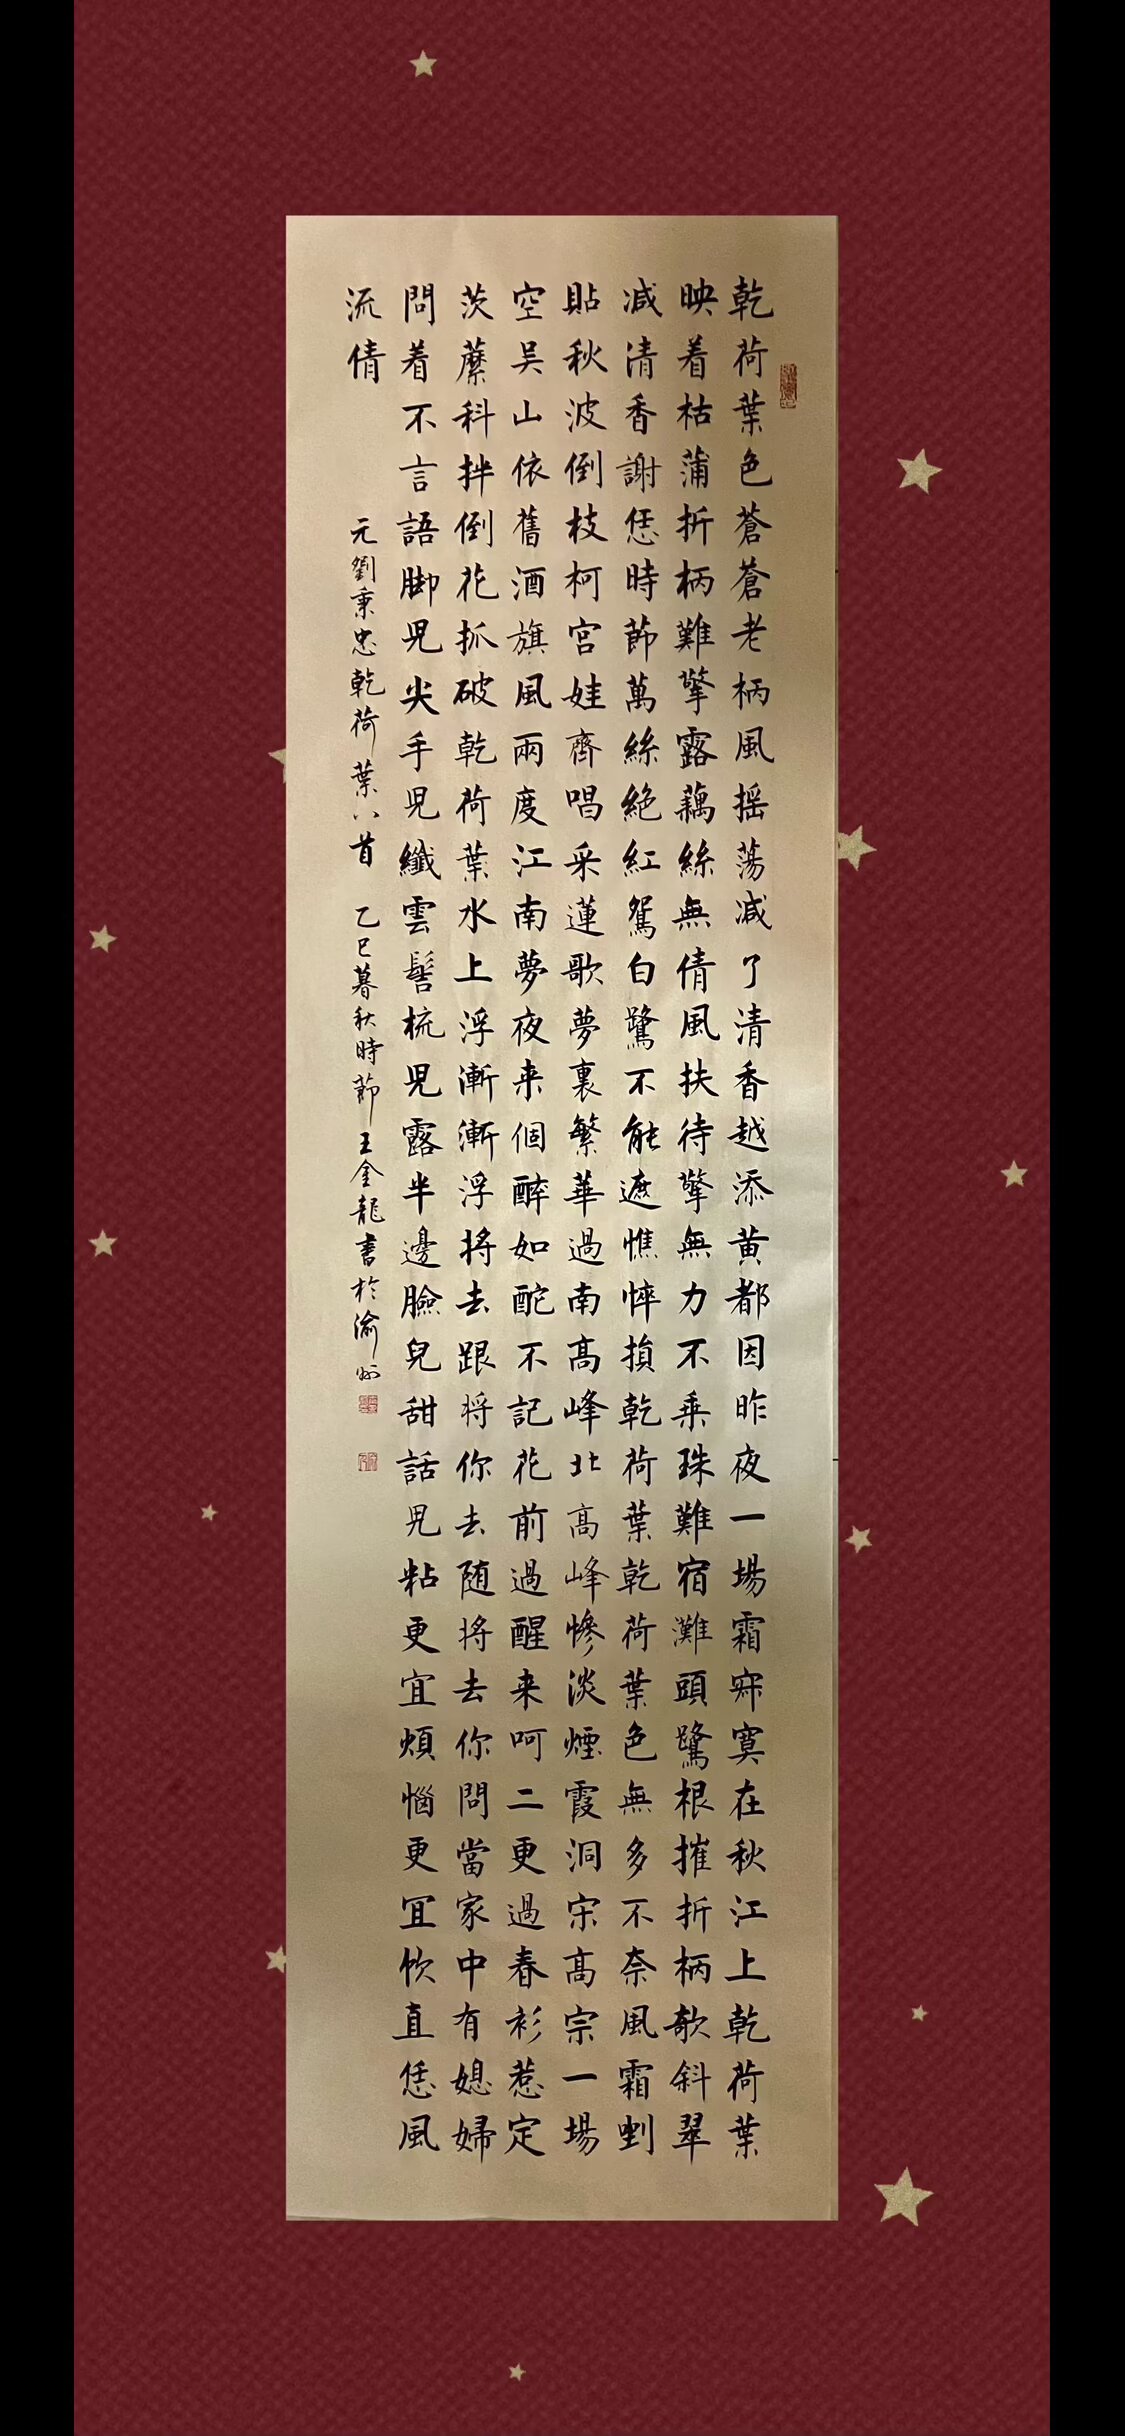 乾荷葉色蒼蒼老柄風摇蕩减了清香越添黄都因昨夜一場霜寂寞在秋江上乾荷葉
映着枯蒲折柄難擎露藕絲無倩風扶待擎無力不乘珠難宿灘頭鷺根摧折柄欹斜翠
减清香謝恁時節萬絲絶紅鴛白鷺不能遮憔悴損乾荷葉乾荷葉色無多不奈風霜剉
貼秋波倒枝柯宫娃齊唱采蓮歌夢裏繁華過南高峰北高峰慘淡煙霞洞宋高宗一場
空吴山依舊酒旗風兩度江南夢夜来個醉如酡不記花前過醒来呵二更過春衫惹定
茨蘪科拌倒花抓破乾荷葉水上浮漸漸浮將去跟将你去随将去你問當家中有媳婦
問着不言語脚兒尖手兒纖雲髻梳兒露半邊臉兒甜話兒粘更宜煩惱更宜忺直恁風
流倩 元劉秉忠乾荷葉八首 乙巳暮秋時節王金龍書於渝州